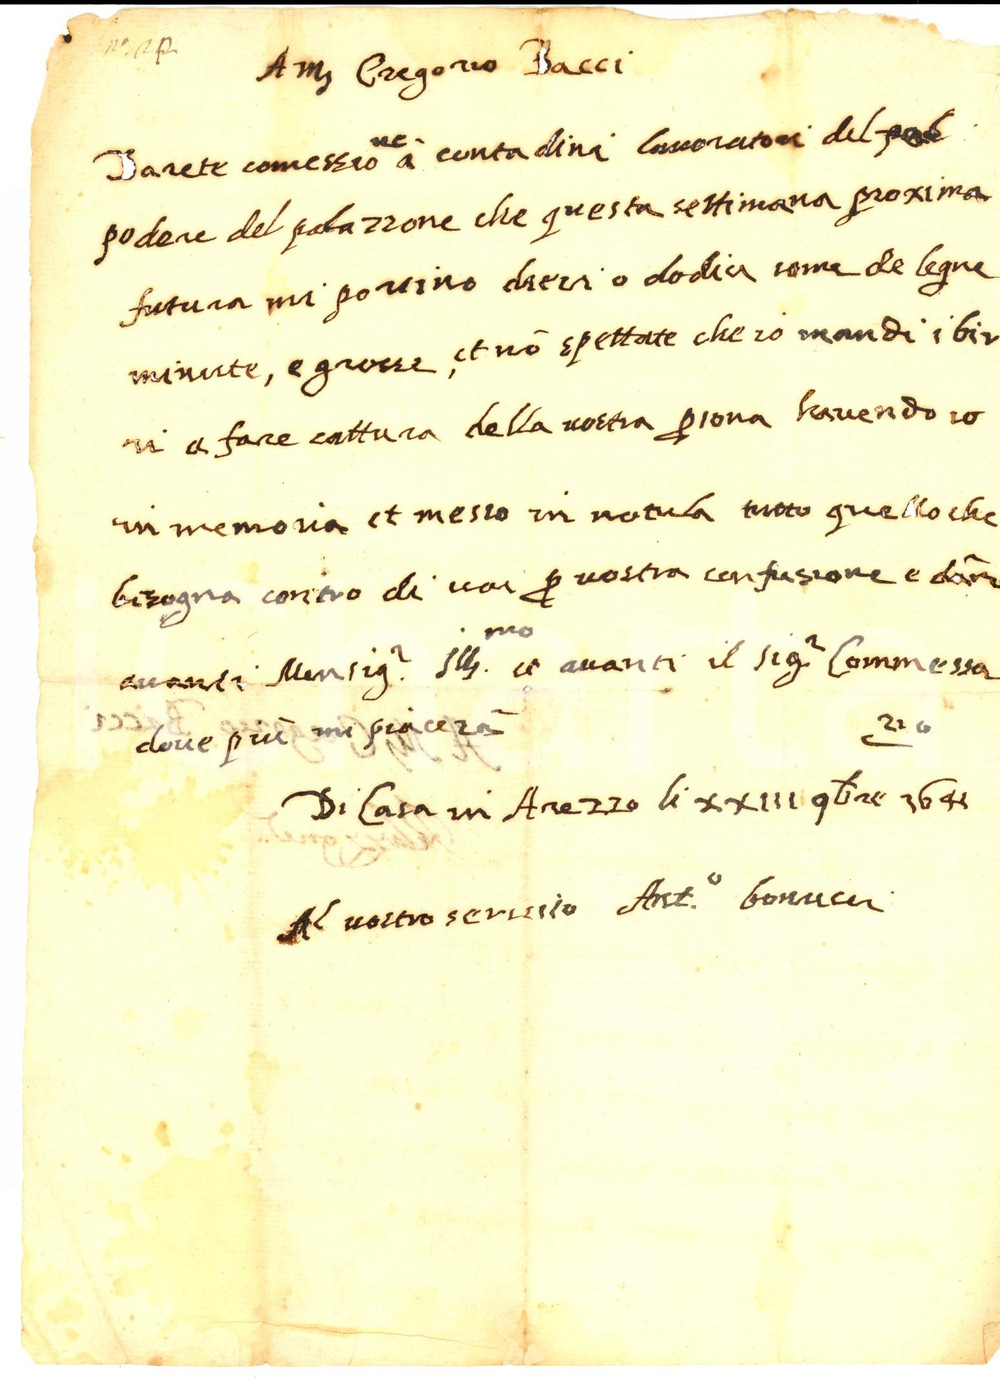 A Mr Gregorio Bacci
Darete comessione à contadini lavoratori del
podere del palazzone che questa settimana proxima
futura mi portino dieci o dodici some de legne
minute, e grosse, et nō spettate che io mandi i bir
ri a fare cattura della vostra psona havendo io
in memoria et messo in notula tutto quello che
bisogna contro di voi p vostra confusione e
avanti Monsigr. Illmo. et avanti il sigr Commessa
rio
dove più mi piacerà
Di Casa in Arezzo li XXIII 9bre
Al vostro servitio Anto. bonucci